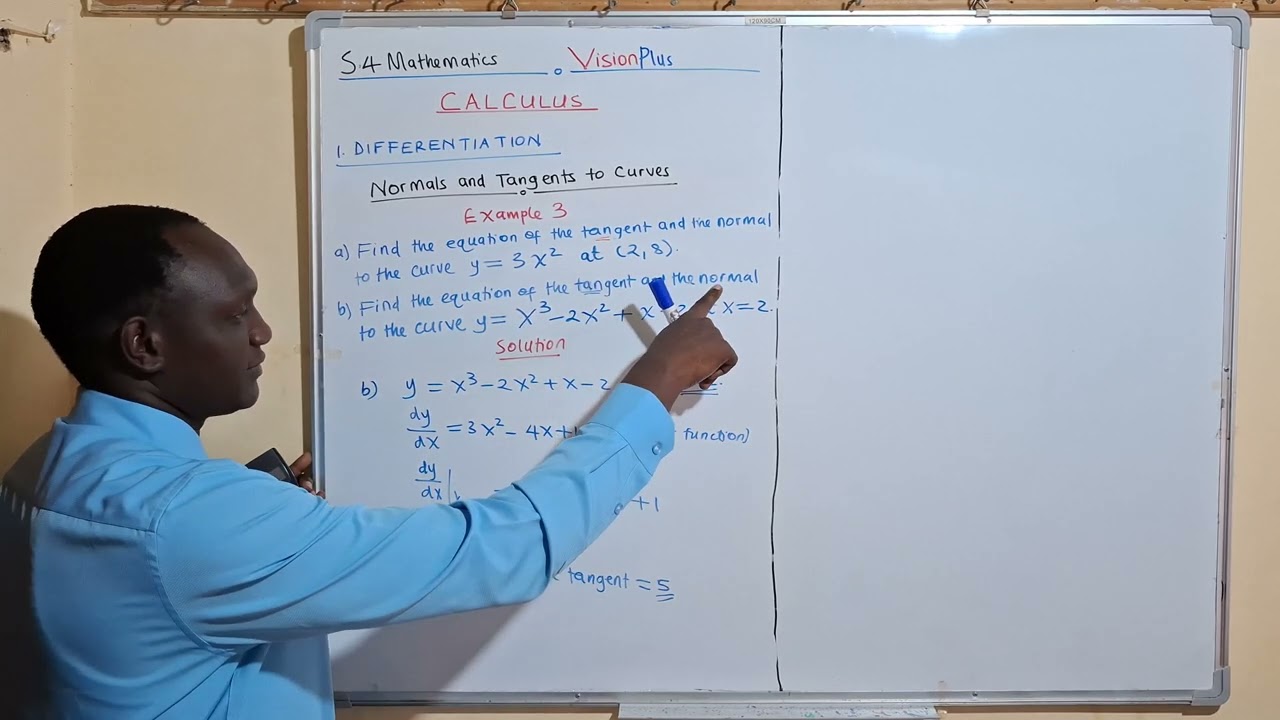 120X90CM
S.4 Mathematics VisionPlus
CALCULUS
1. DIFFERENTIATION
Normals and Tangents to Curves
Example 3
a) Find the equation of the tangent and the normal
to the curve y = 3x² at (2, 8).
b) Find the equation of the tangent the normal
to the curve y = x³ - 2x² + x x = 2.
Solution
b) y = x³ - 2x² + x - 2
dy/dx = 3x² - 4x + 1 function)
dy/dx | + 1
tangent = 5